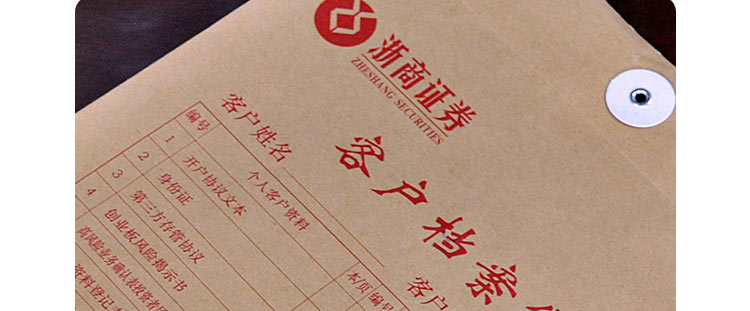 浙商证券
ZHESHANG SECURITIES
客户档案
客户姓名
客户
编号
个人客户资料
本/页
编号
1
开户协议文本
2
身份证
3
第三方存管协议
4
创业板风险揭示书
高风险业务确认表投资者
资料登记